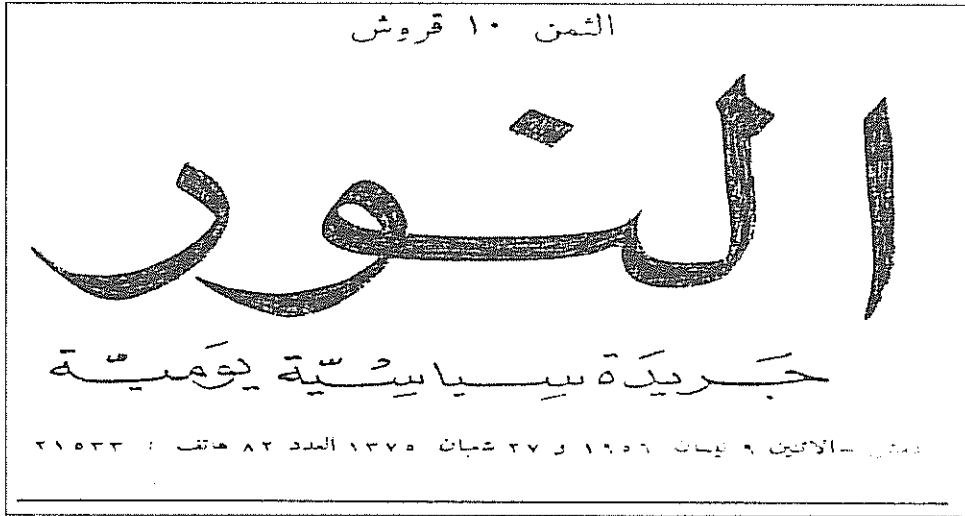 الثمن ١٠ قروش
النور
جَريدَة سِياسِيّة يوَميّة
دمشق - الاثنين ٩ نيسان ١٩٥٦ و ٢٧ شعبان ١٣٧٥ العدد ٨٢ هاتف : ٢١٥٣٣